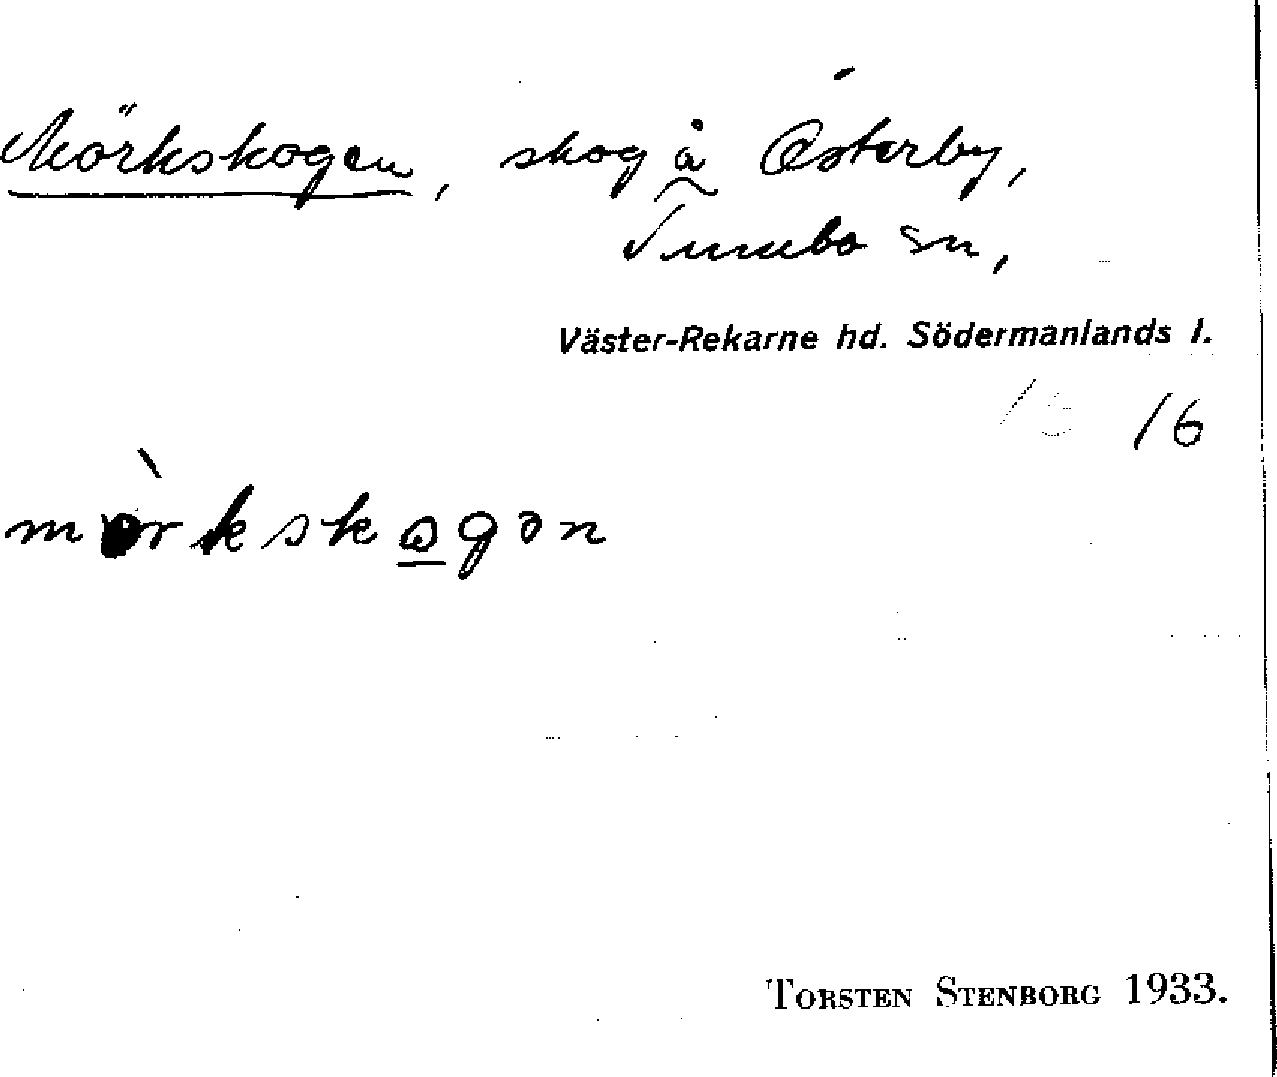 Mörkskogen, skog å Österby,
Tumbo sn,
Väster-Rekarne hd. Södermanlands l.
16
mòrkskogən
TORSTEN STENBORG 1933.